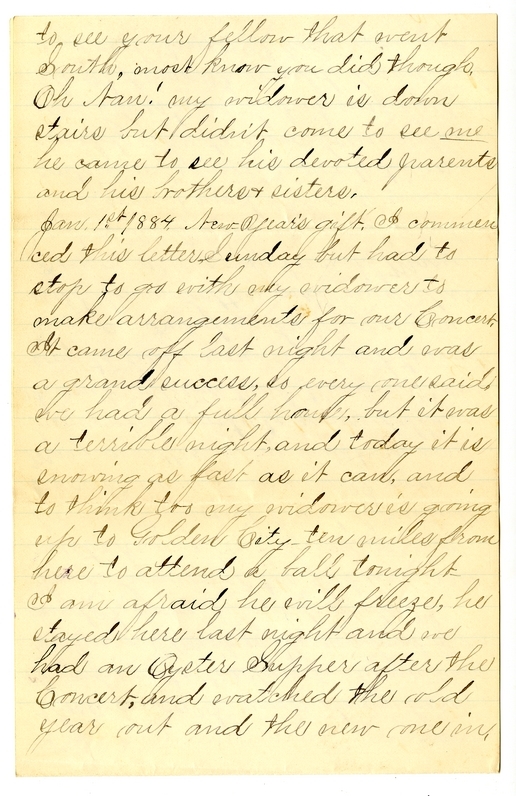 to see your fellow that went
South, most know you did though.
Oh Nan! my widower is down
stairs but didn't come to see me
he came to see his devoted parents
and his brothers & sisters.
Jan. 1st 1884. New Year's gift, I commen
ced this letter Sunday but had to
stop to go with my widower to
make arrangements for our Concert.
It came off last night and was
a grand success, so every one said,
we had a full house, but it was
a terrible night, and today it is
snowing as fast as it can, and
to think too my widower is going
up to Golden City - ten miles from
here to attend a ball tonight
I am afraid he will freeze, he
stayed here last night and we
had an Oyster Supper after the
Concert, and watched the old
year out and the new one in,